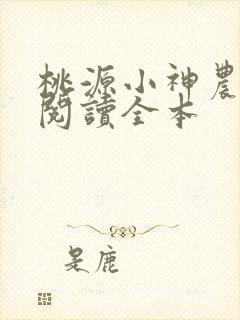 桃源小神農
閱讀全本
是鹿